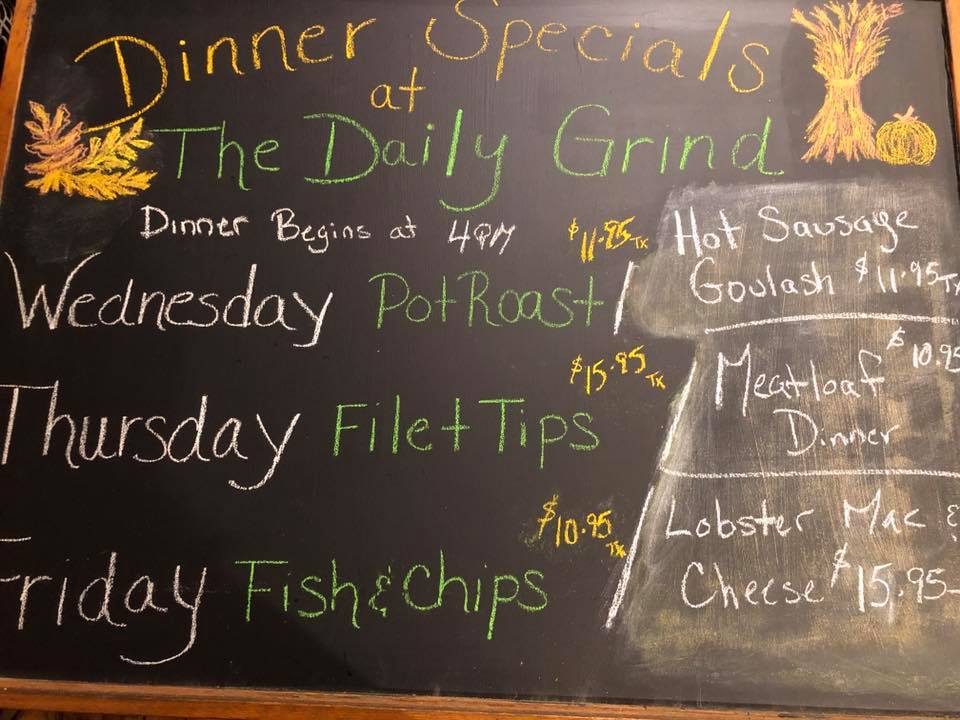 Dinner Specials
at
The Daily Grind
Dinner Begins at 4PM
Wednesday Pot Roast $11.95 TX
Hot Sausage
Goulash $11.95 TX
Thursday Filet Tips $15.95 TX
Meatloaf $10.95
Dinner
Friday Fish & Chips $10.95 TX
Lobster Mac &
Cheese $15.95